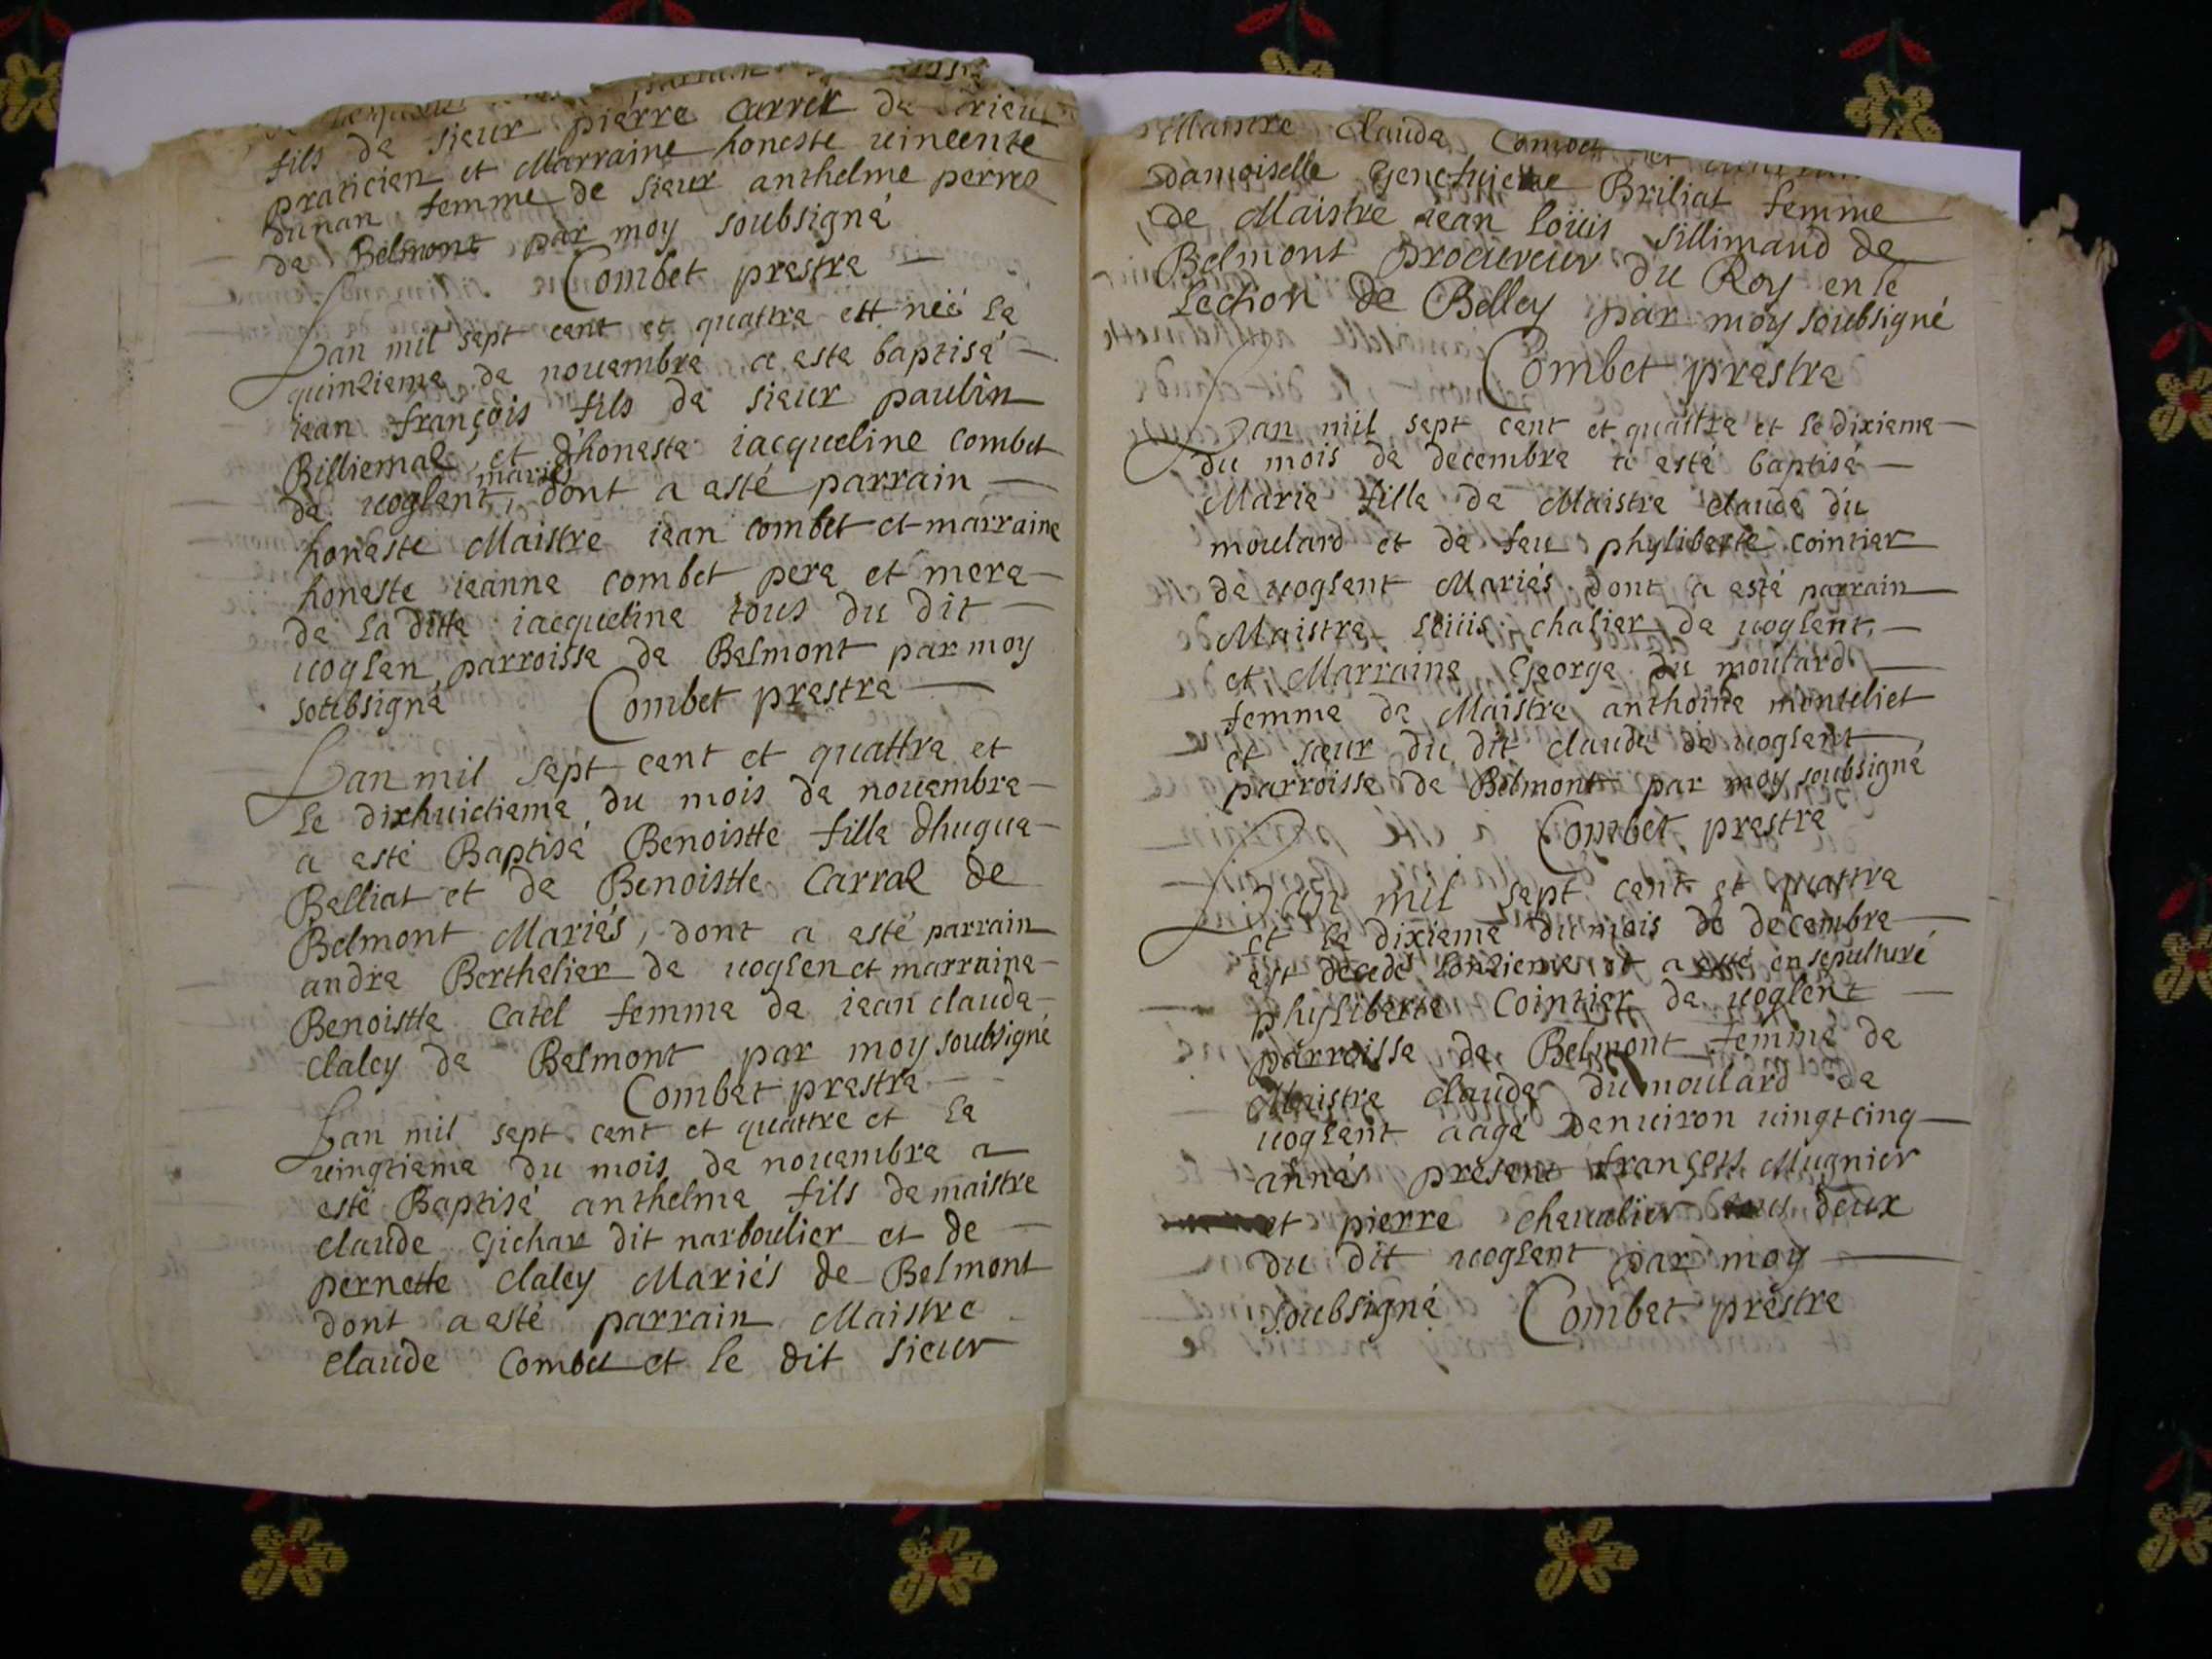 fils de sieur pierre Carrel de
praticien et Marraine honeste uincente
dunan femme de sieur anthelme perret
de Belmont par moy soubsigné
Combet prestre
Lan mil sept cent et quattre ett neé le
quinzieme de nouembre a este baptisé
iean françois fils de sieur paulin
Billiemaz et d'honeste iacqueline Combet
mariés
de uoglent, dont a esté parrain
honeste Maistre iean Combet et marraine
honeste ieanne Combet pere et mere
de la ditte iacqueline tous du dit
uoglen parroisse de Belmont par moy
soubsigné Combet prestre
Lan mil sept cent et quattre et
le dixhuictieme du mois de nouembre
a esté Baptisé Benoistte fille dhugue
Belliat et de Benoistte Carral de
Belmont Mariés, dont a esté parrain
andre Berthelier de uoglen et marraine
Benoistte Catel femme de iean claude
claley de Belmont par moy soubsigné
Combet prestre
Lan mil sept cent et quattre et le
uingtieme du mois de nouembre a
esté Baptisé anthelme fils de maistre
claude Gichar dit narboulier et de
pernette Claley Mariés de Belmont
dont a esté parrain Maistre
claude Combet et le dit sieur
Maistre Claude Combet et
damoiselle Briliat femme
de Maistre iean loüis sillimand de
Belmont procureur du Roy en le
lection de Belley par moy soubsigné
Combet prestre
Lan mil sept cent et quattre et le dixieme
du mois de decembre a esté baptisé
Marie fille de Maistre claude du
moulard et de feu phyliberte cointier
de uoglent Mariés dont a esté parrain
Maistre loüis chalier de uoglent,
et Marraine George du moulard
femme de Maistre anthoine monteliet
et sœur du dit claude de uoglent
parroisse de Belmont par moy soubsigné
Combet prestre
Lan mil sept cent et quattre
et le dixieme du mois de decembre
est decedé lonzieme et a esté ensepulturé
phyliberte Cointier de uoglent
parroisse de Belmont femme de
Maistre claude du moulard de
uoglent aagé denuiron uingtcinq
annés present françois Mugnier
et pierre cheualier tous deux
du dit uoglent par moy
soubsigné Combet prestre